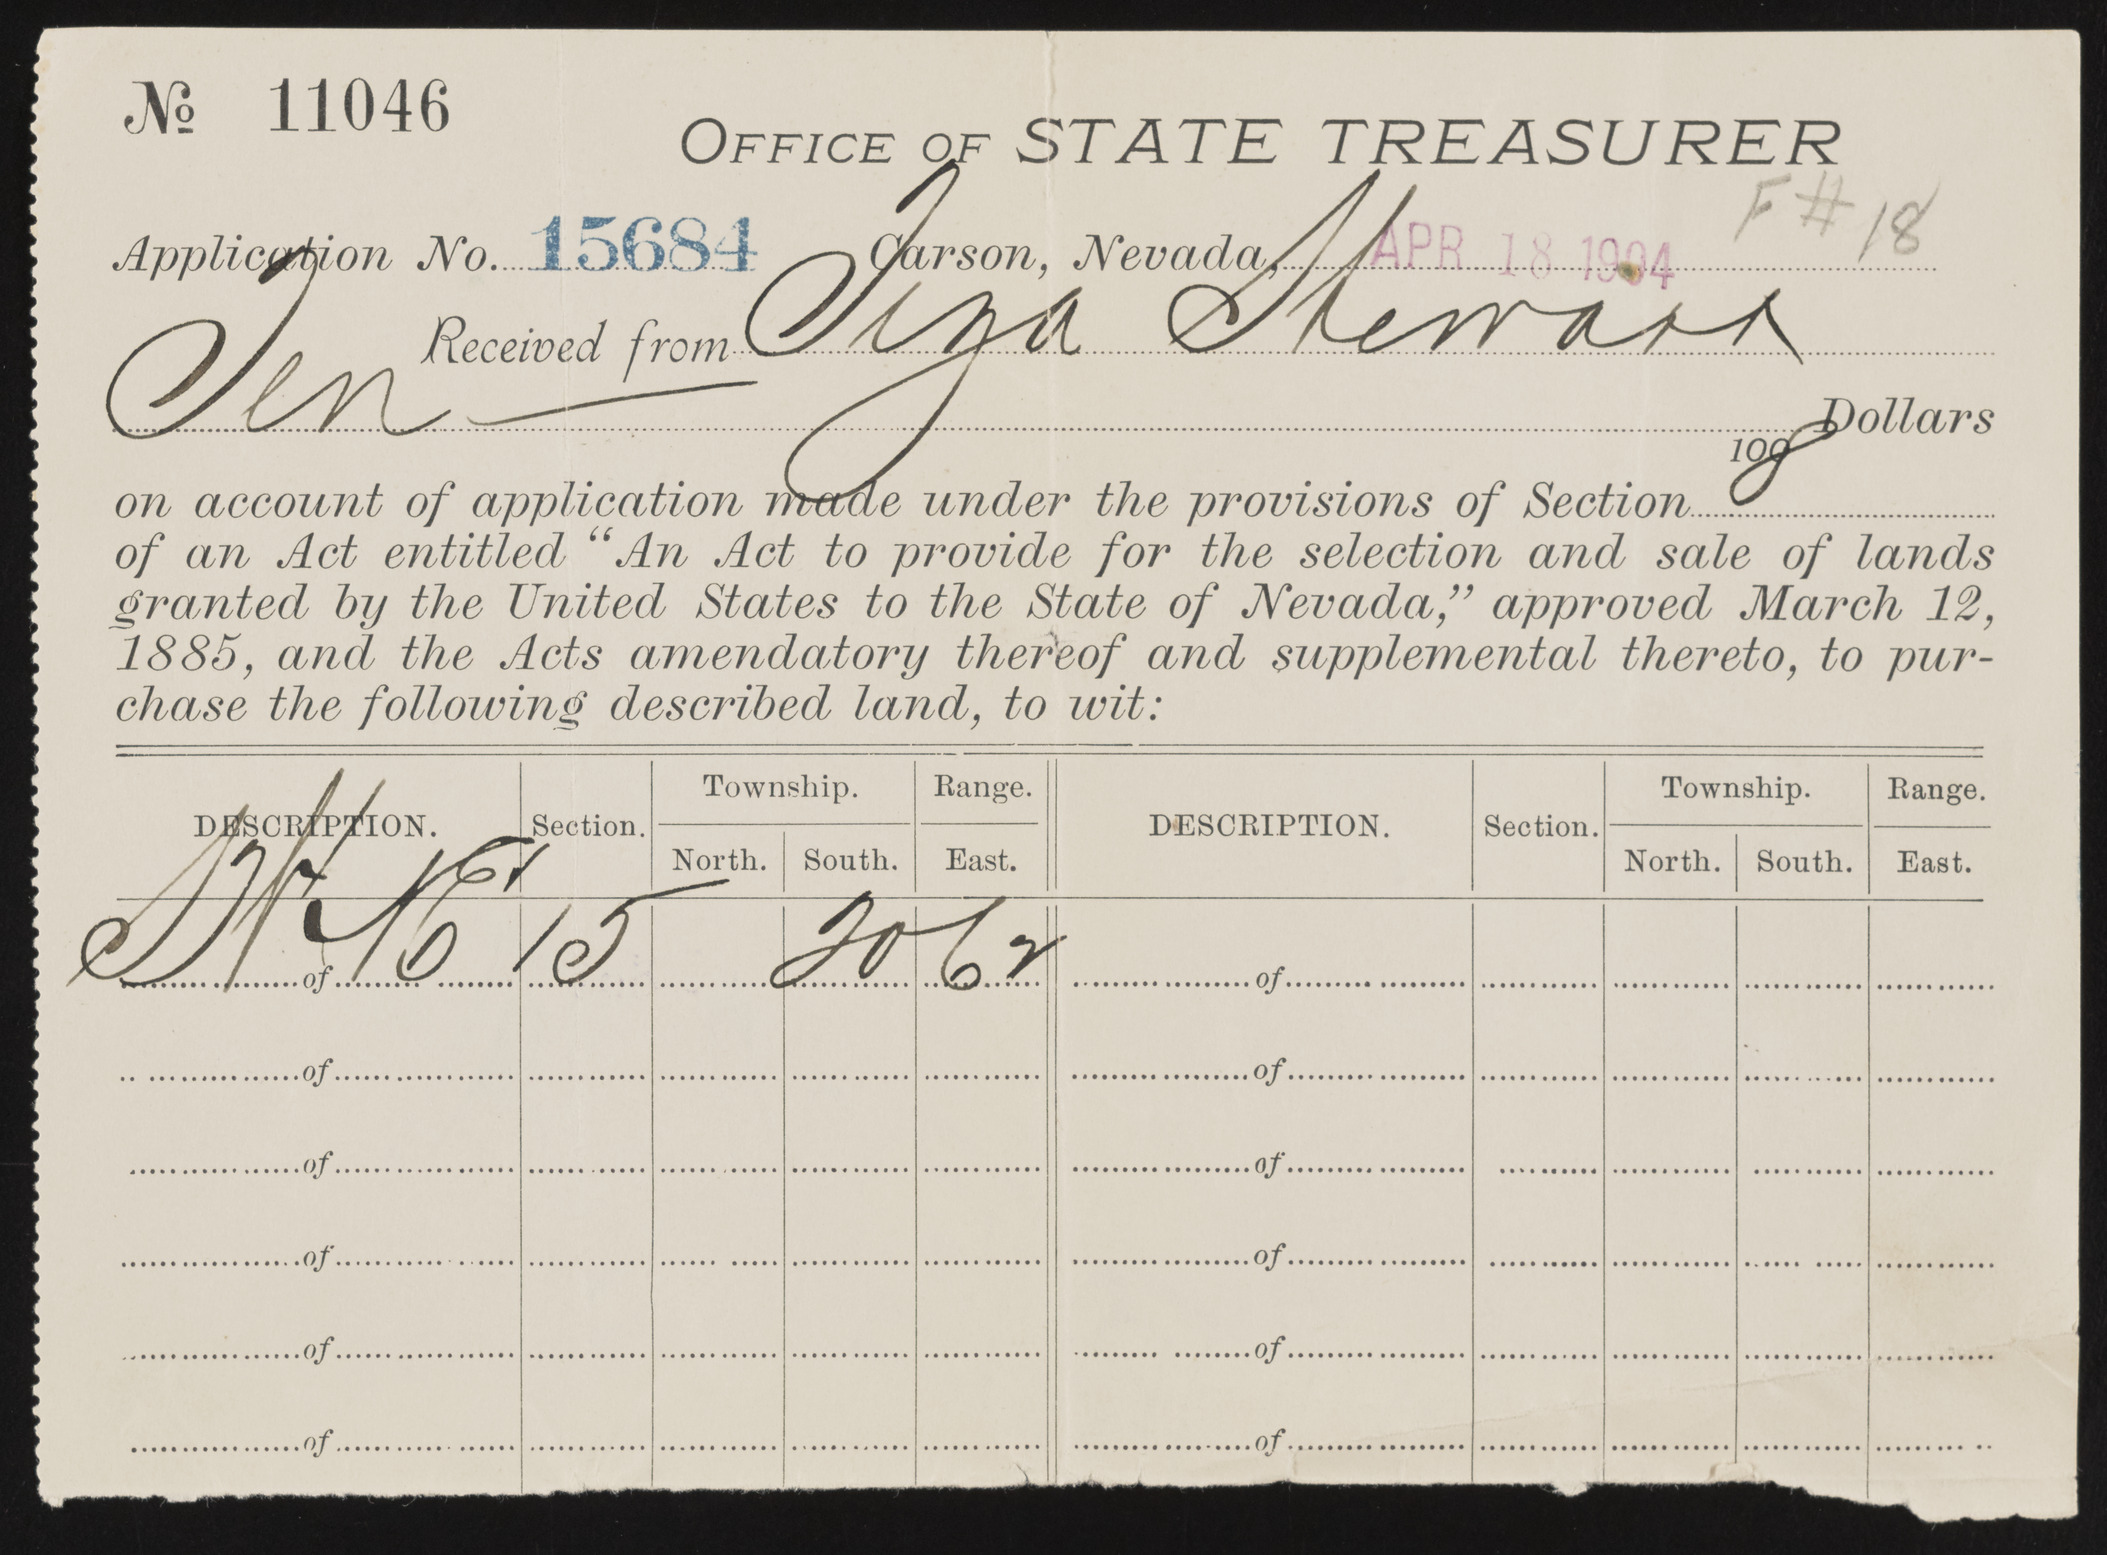 № 11046
OFFICE OF STATE TREASURER
F # 18
Application No. 15684 Carson, Nevada, APR 18 1904
Received from Tiza Stewart
Ten Dollars
100
on account of application made under the provisions of Section 8
of an Act entitled “An Act to provide for the selection and sale of lands
granted by the United States to the State of Nevada,” approved March 12,
1885, and the Acts amendatory thereof and supplemental thereto, to pur-
chase the following described land, to wit:
DESCRIPTION. Section. Township. Range. DESCRIPTION. Section. Township. Range.
North. South. East. North. South. East.
of 15 20 62 of
of of
of of
of of
of of
of of